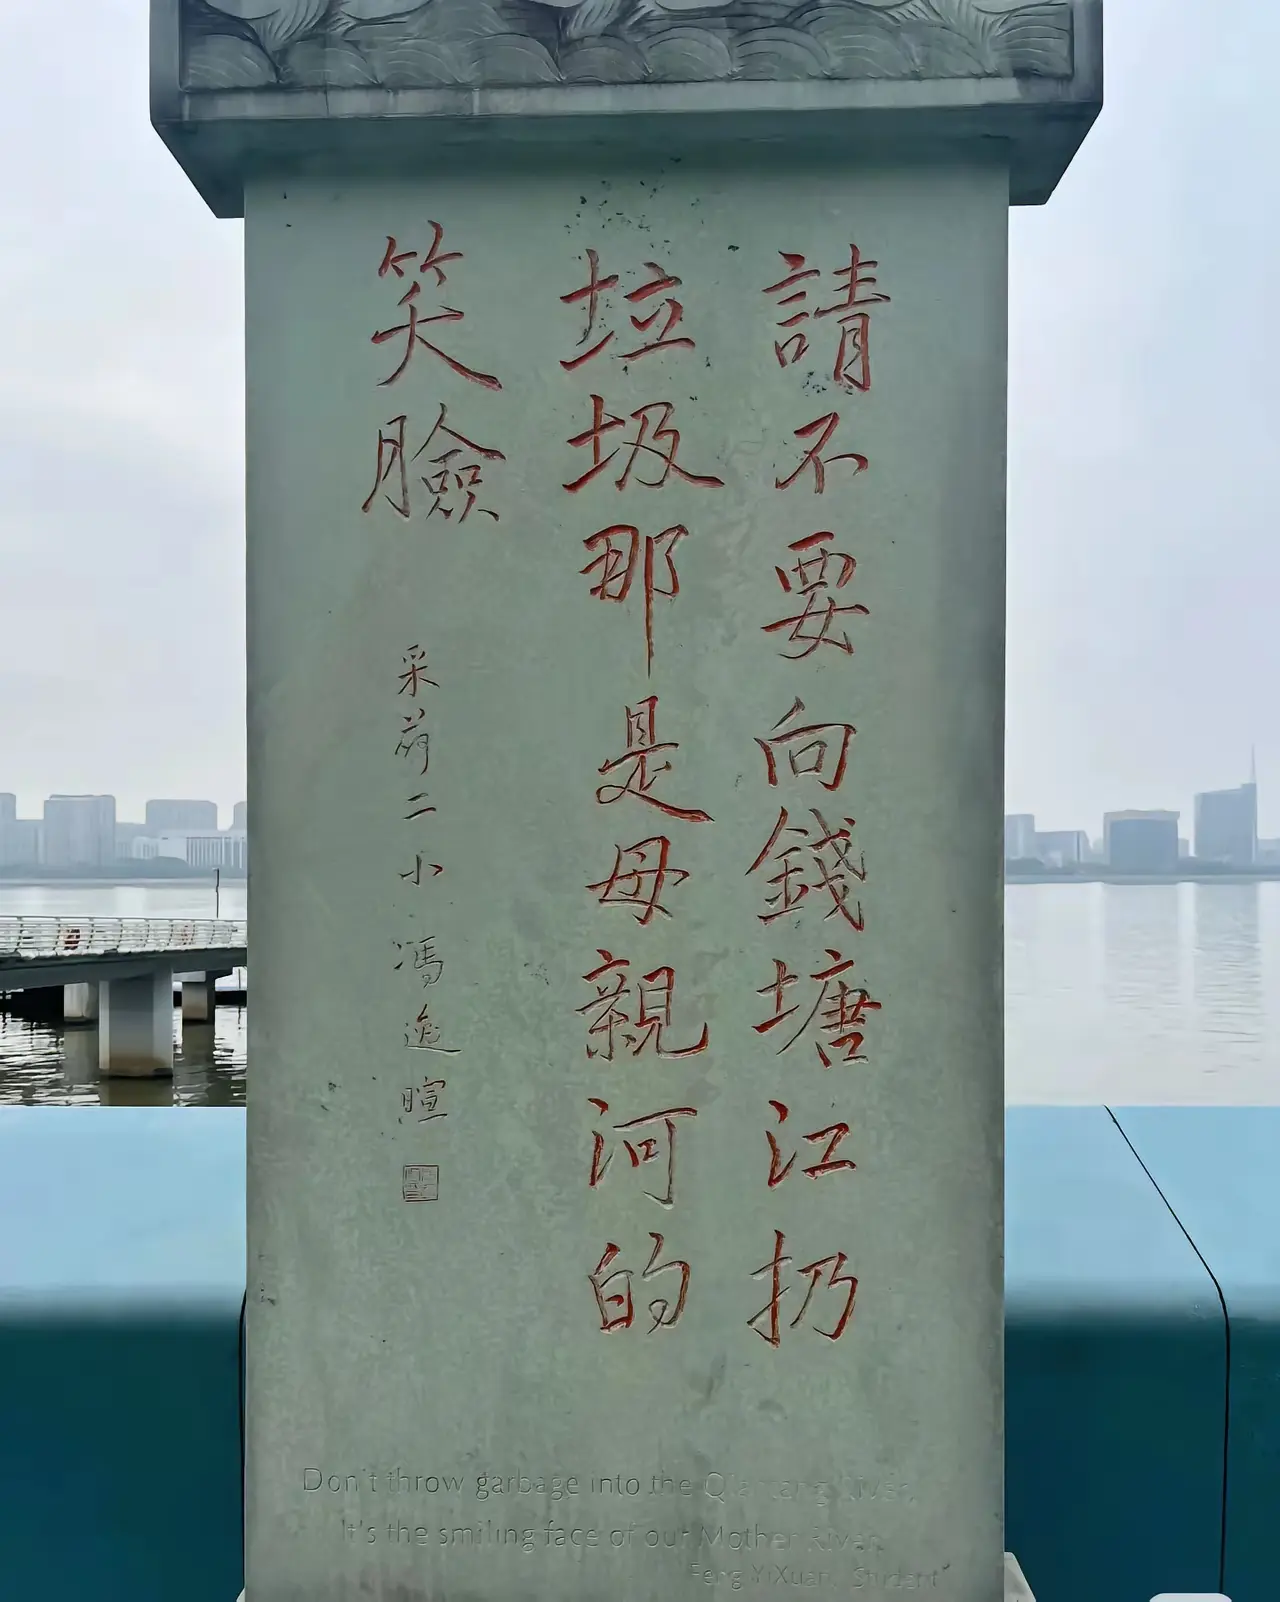 請不要向錢塘江扔
垃圾那是母親河的
笑臉
采荷二小馮逸暄
Don't throw garbage into the Qiantang River,
It's the smiling face of our Mother River.
Feng YiXuan, Student